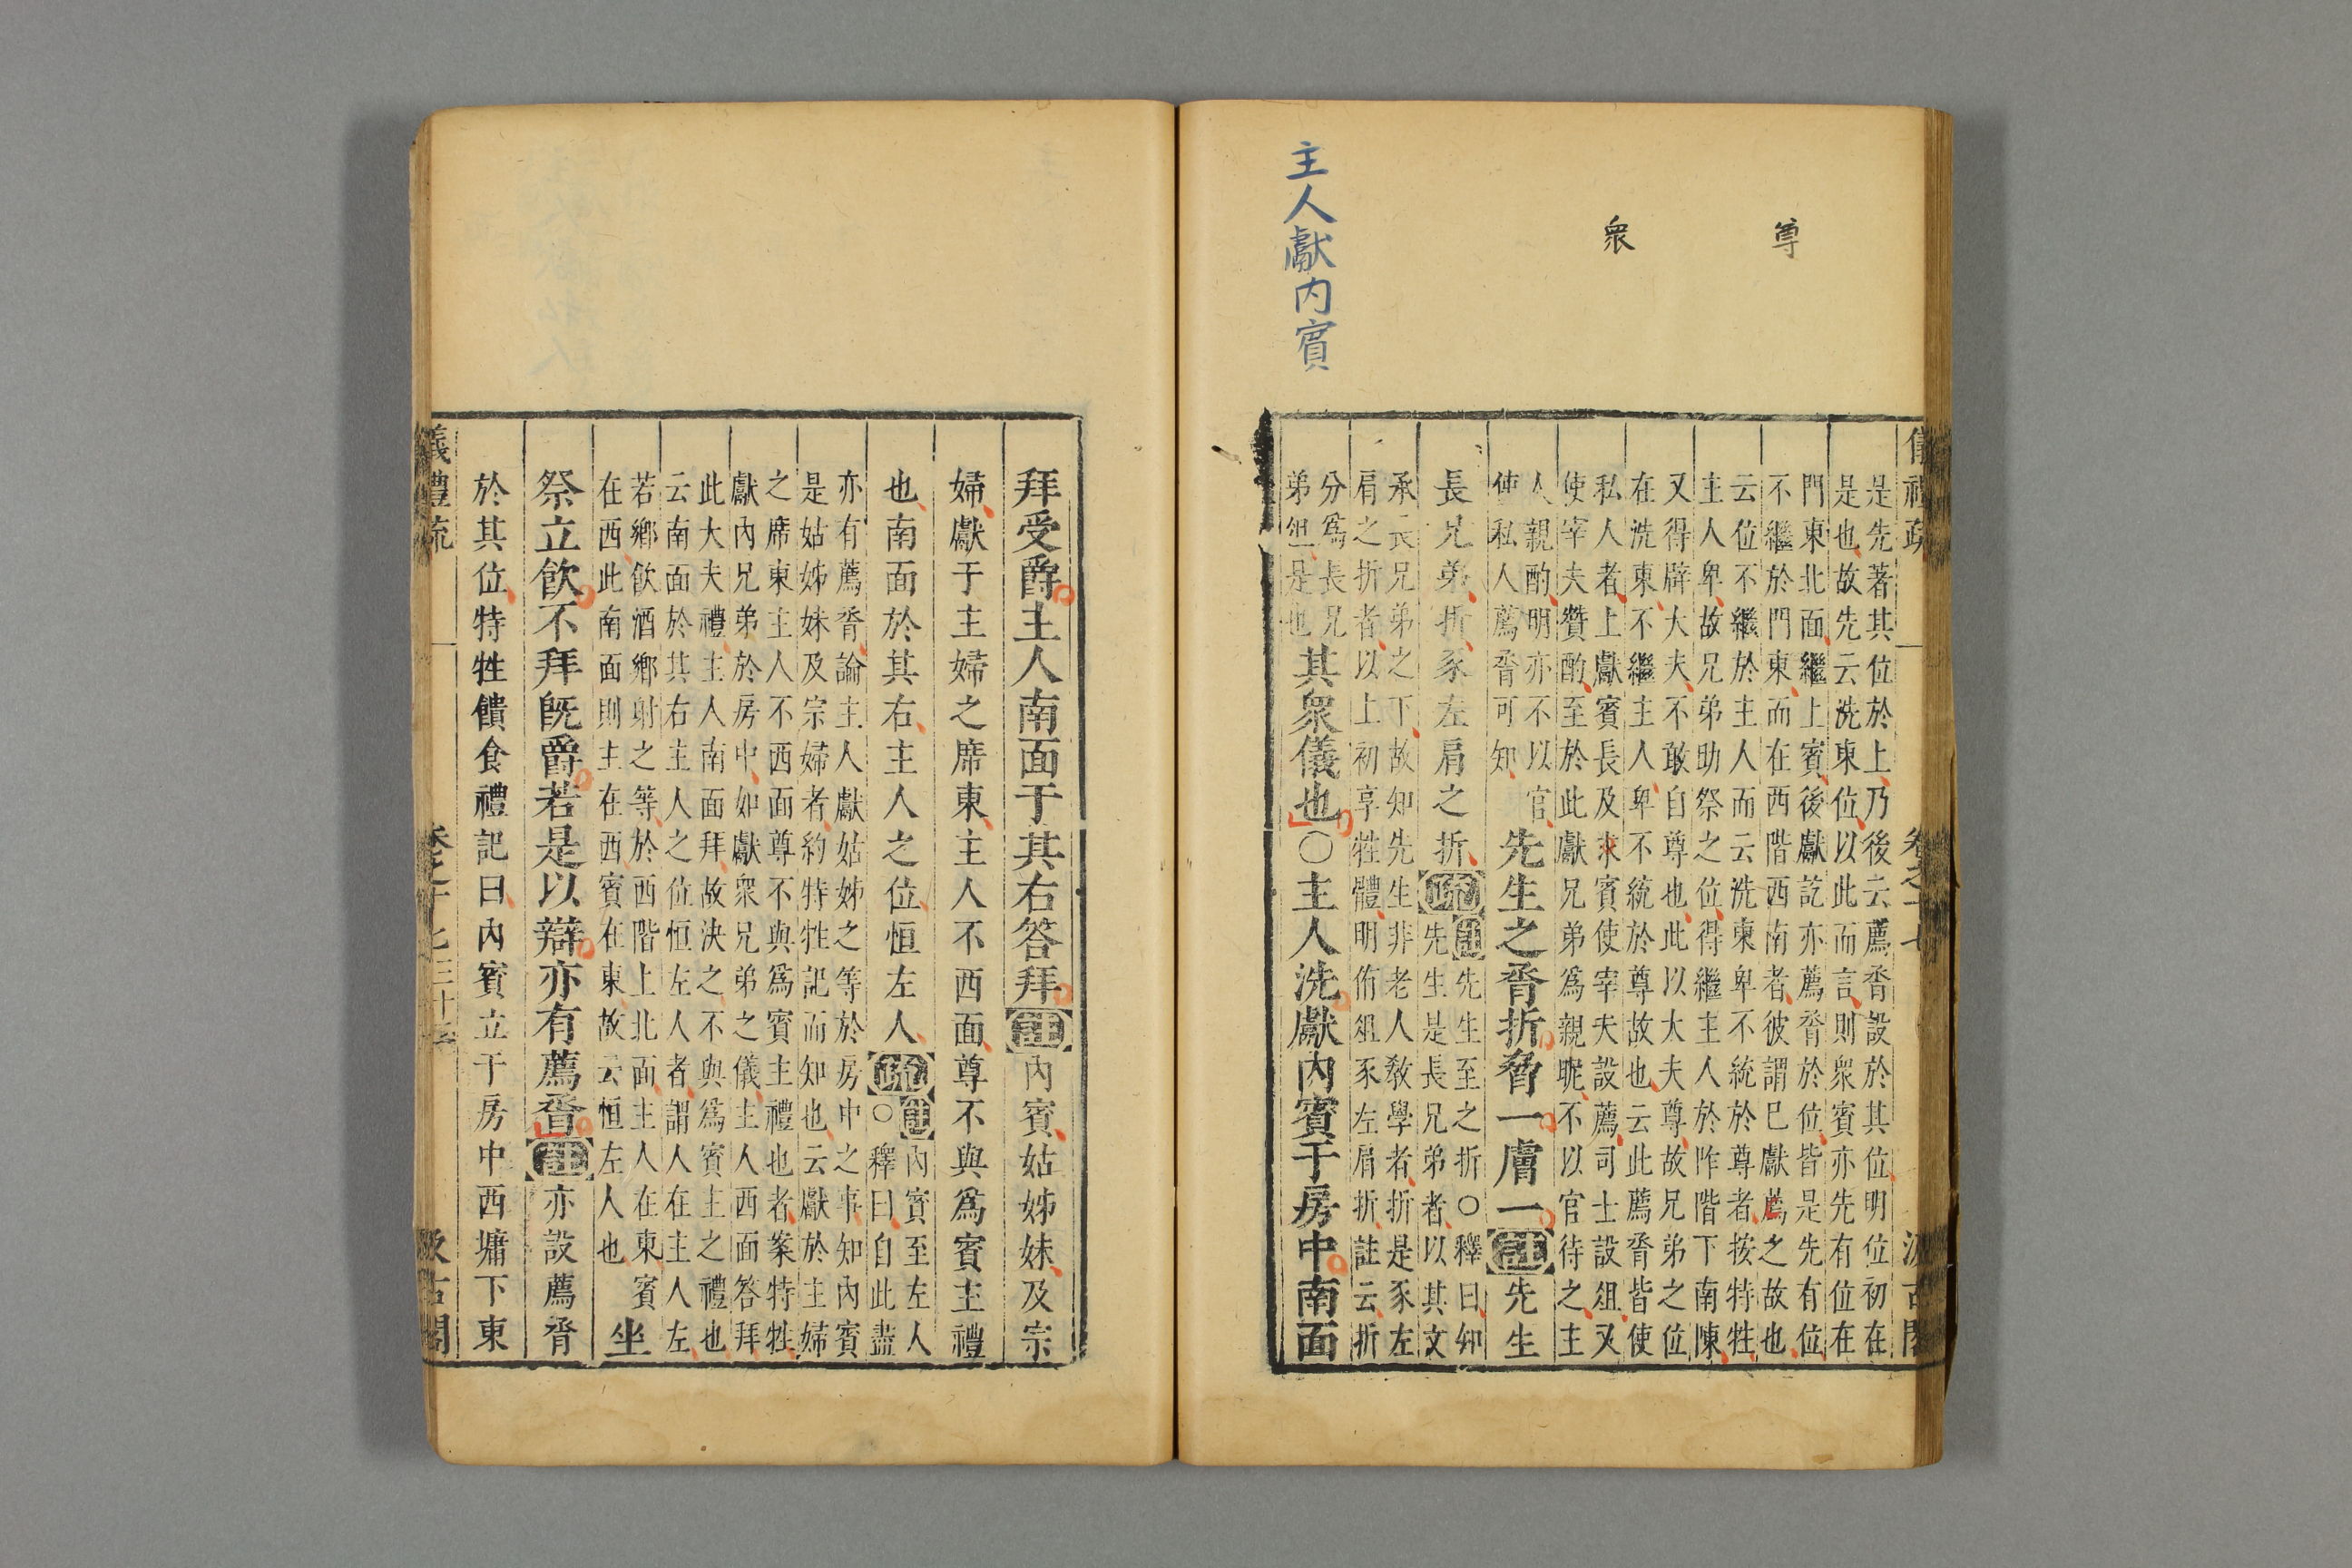 尊
衆
主人獻内賓
是先著其位於上乃後云薦脀設於其位明位初在
是也故先云洗東位以此而言則衆賓亦先有位在
門東北面繼上賓後獻訖亦薦脀於位皆是先有位
不繼於門東而在西階西南者彼謂巳獻薦之故也
云位不繼於主人而云洗東卑不統於尊者按特牲
主人卑故兄弟助祭之位得繼主人於阼階下南陳
又得辟大夫不敢自尊也此以大夫尊故兄弟之位
在洗東不繼主人卑不統於尊故也云此薦脀皆使
私人者上獻賓長及求賓使宰夫設薦司士設俎又
使宰夫贊酌至於此獻兄弟爲親昵不以官待之主
人親酌明亦不以官
使私人薦脀可知
先生之脀折脅一膚一註先生
長兄弟折豕左肩之折疏註先生至之折○釋曰知
先生是長兄弟者以其文
承長兄弟之下故知先生非老人教學者折是豕左
肩之折者以上初享牲體明侑俎豕左肩折註云折
分爲長兄
弟俎是也
其衆儀也○主人洗獻內賓于房中南面
拜受爵主人南面于其右答拜註內賓姑姊妹及宗
婦獻于主婦之席東主人不西面尊不與爲賓主禮
也南面於其右主人之位恒左人疏註內賓至左人
○釋曰自此盡
亦有薦脀論主人獻姑姊之等於房中之事知內賓
是姑姊妹及宗婦者約特牲記而知也云獻於主婦
之席東主人不西面尊不與爲賓主禮也者案特牲
獻內兄弟於房中如獻衆兄弟之儀主人西面答拜
此大夫禮主人南面拜故決之不與爲賓主之禮也
云南面於其右主人之位恒左人者謂人在主人左
若鄉飲酒鄉射之等於西階上北面主人在東賓
在西此南面則主在西賓在東故云恒左人也
坐
祭立飲不拜旣爵若是以辯亦有薦脀註亦設薦脀
於其位特牲饋食禮記曰內賓立于房中西墉下東
儀禮疏
卷之十七
汲古閣